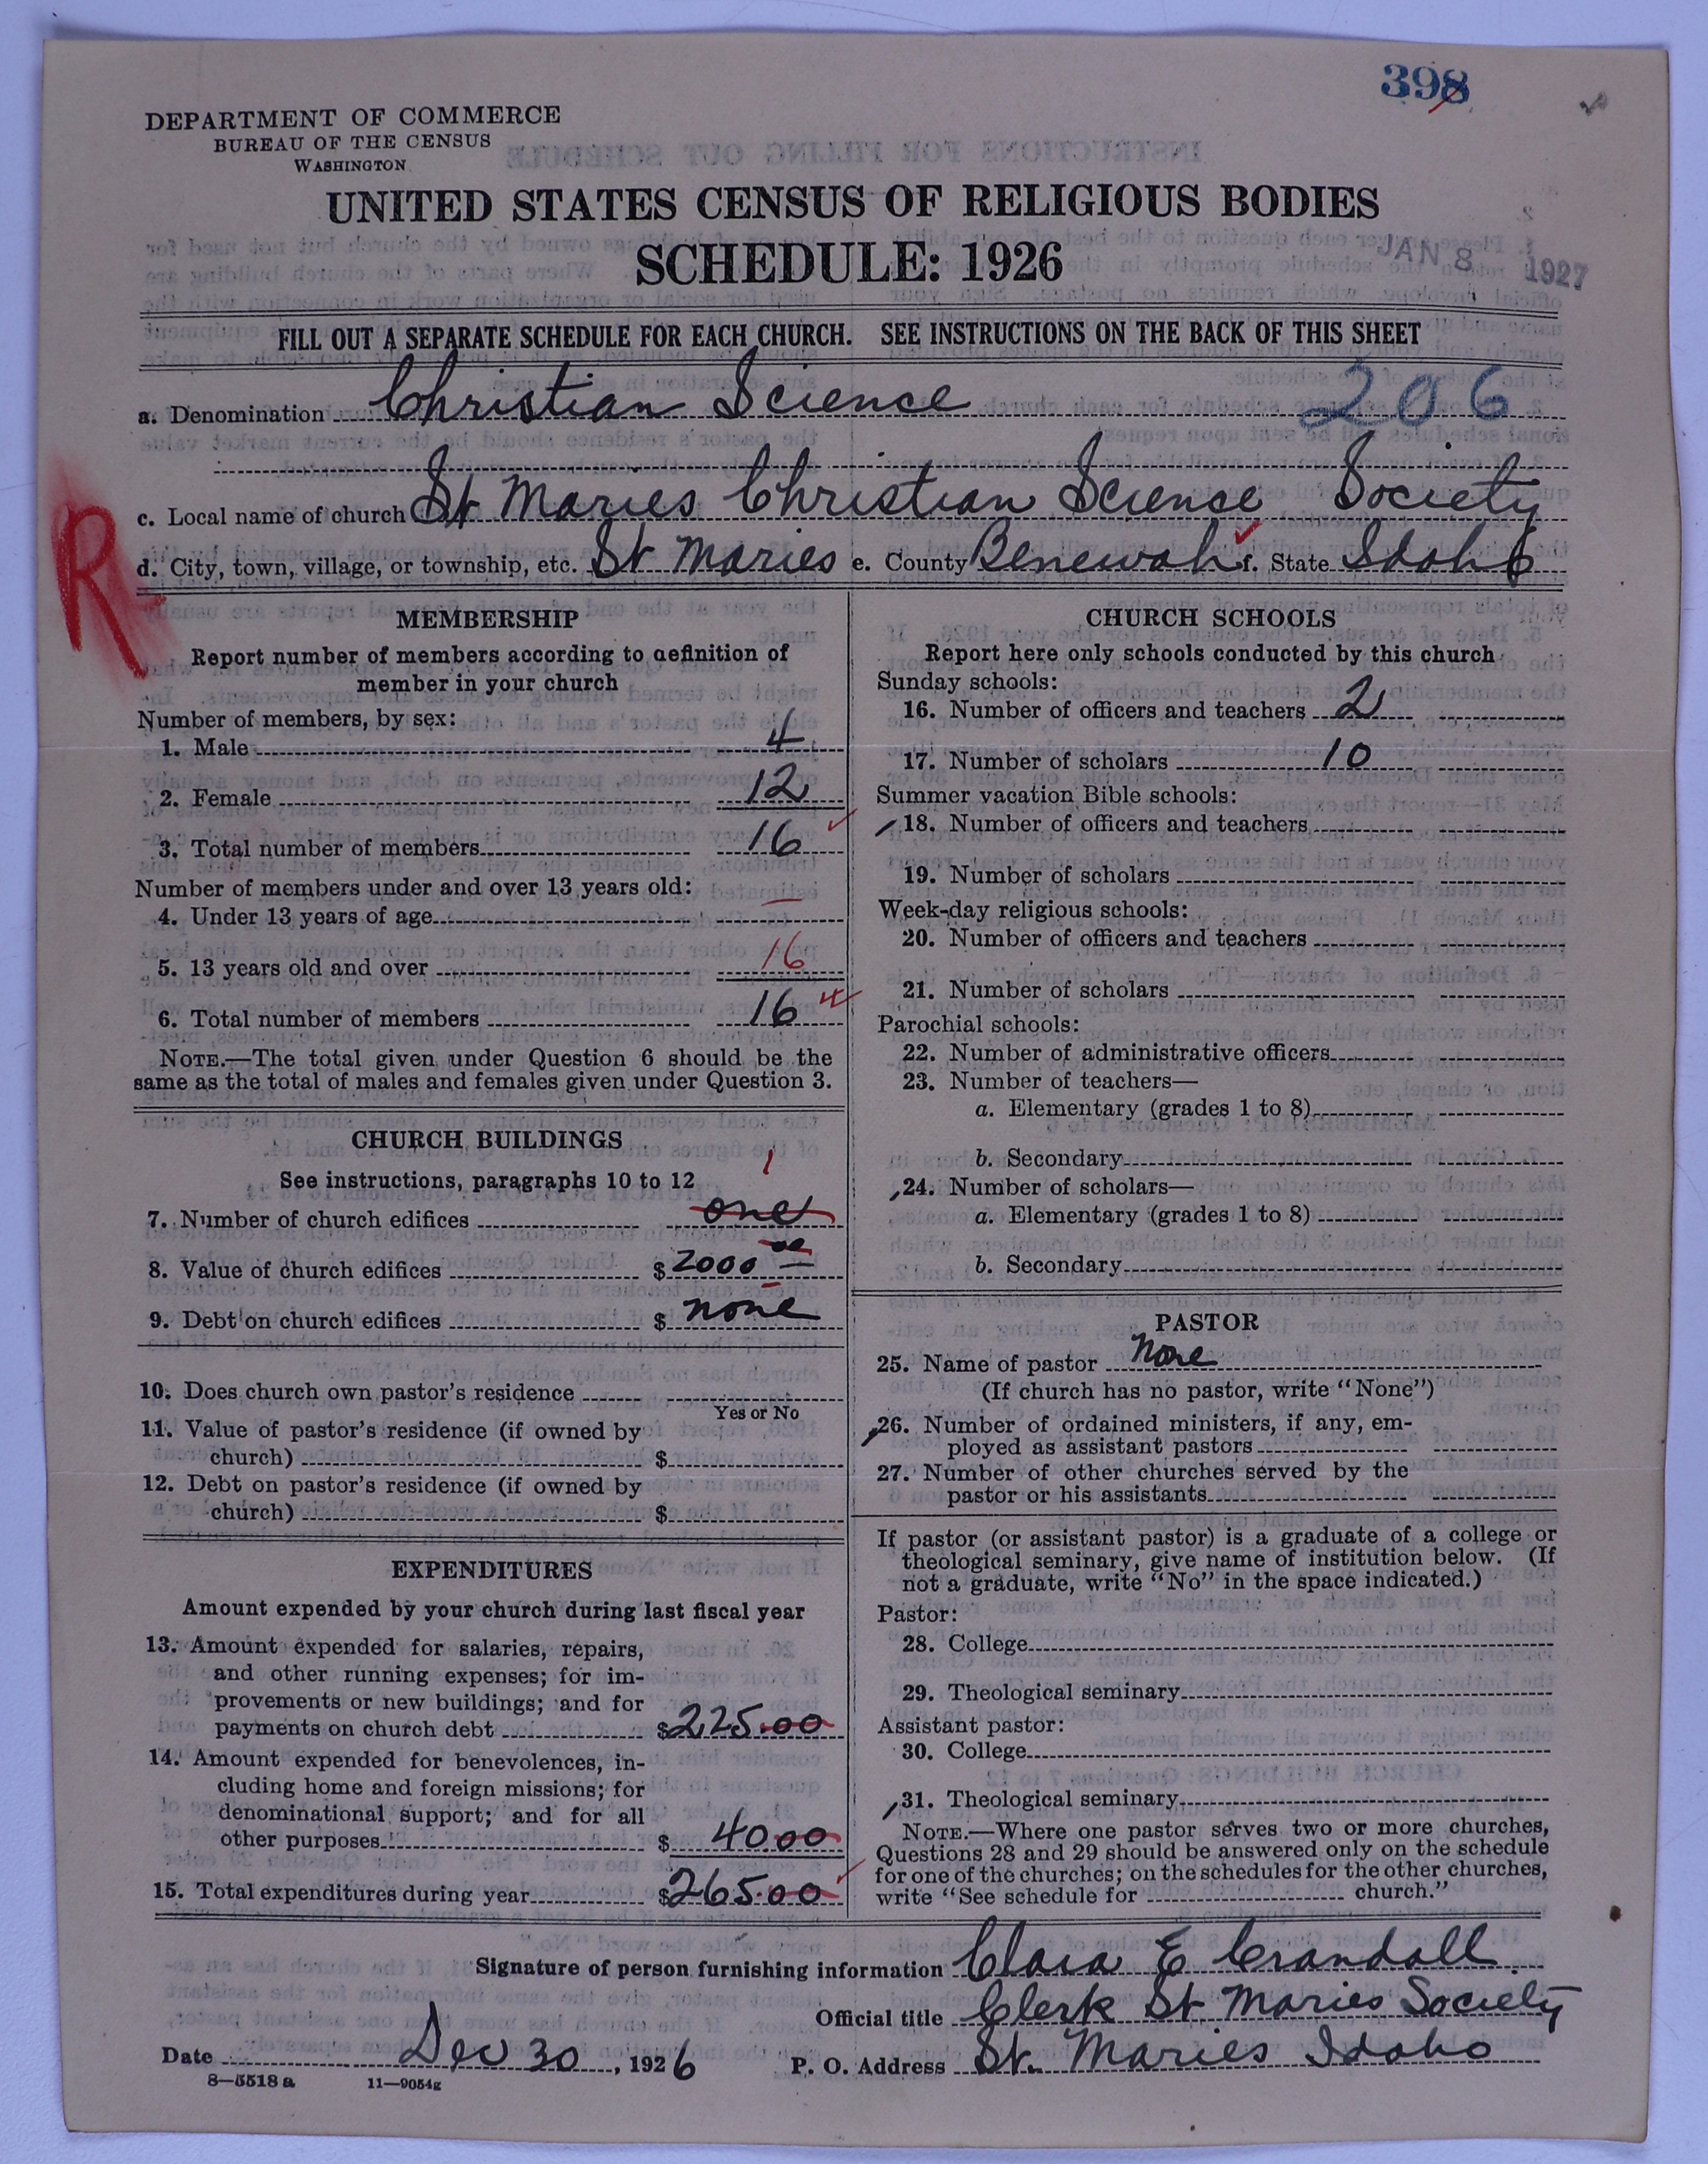 398
DEPARTMENT OF COMMERCE
BUREAU OF THE CENSUS
WASHINGTON
UNITED STATES CENSUS OF RELIGIOUS BODIES
SCHEDULE: 1926
JAN 8 1927
FILL OUT A SEPARATE SCHEDULE FOR EACH CHURCH. SEE INSTRUCTIONS ON THE BACK OF THIS SHEET
a. Denomination Christian Science 206
c. Local name of church St Maries Christian Science Society
R
d. City, town, village, or township, etc. St Maries e. County Benewah f. State Idaho
MEMBERSHIP
Report number of members according to definition of
member in your church
Number of members, by sex:
1. Male 4
2. Female 12
3. Total number of members 16
Number of members under and over 13 years old:
4. Under 13 years of age —
5. 13 years old and over 16
6. Total number of members 16
NOTE.—The total given under Question 6 should be the
same as the total of males and females given under Question 3.
CHURCH BUILDINGS
See instructions, paragraphs 10 to 12
1
7. Number of church edifices one
8. Value of church edifices $ 2000 00
9. Debt on church edifices $ none
10. Does church own pastor's residence
Yes or No
11. Value of pastor's residence (if owned by
church) $
12. Debt on pastor's residence (if owned by
church) $
EXPENDITURES
Amount expended by your church during last fiscal year
13. Amount expended for salaries, repairs,
and other running expenses; for im-
provements or new buildings; and for
payments on church debt $ 225.00
14. Amount expended for benevolences, in-
cluding home and foreign missions; for
denominational support; and for all
other purposes $ 40.00
15. Total expenditures during year $ 265.00
CHURCH SCHOOLS
Report here only schools conducted by this church
Sunday schools:
16. Number of officers and teachers 2
17. Number of scholars 10
Summer vacation Bible schools:
18. Number of officers and teachers
19. Number of scholars
Week-day religious schools:
20. Number of officers and teachers
21. Number of scholars
Parochial schools:
22. Number of administrative officers
23. Number of teachers—
a. Elementary (grades 1 to 8)
b. Secondary
24. Number of scholars—
a. Elementary (grades 1 to 8)
b. Secondary
PASTOR
25. Name of pastor None
(If church has no pastor, write "None")
26. Number of ordained ministers, if any, em-
ployed as assistant pastors
27. Number of other churches served by the
pastor or his assistants
If pastor (or assistant pastor) is a graduate of a college or
theological seminary, give name of institution below. (If
not a graduate, write "No" in the space indicated.)
Pastor:
28. College
29. Theological seminary
Assistant pastor:
30. College
31. Theological seminary
NOTE.—Where one pastor serves two or more churches,
Questions 28 and 29 should be answered only on the schedule
for one of the churches; on the schedules for the other churches,
write "See schedule for church."
Signature of person furnishing information Clara E Crandall
Official title Clerk St. Maries Society
Date Dec 30, 1926 P. O. Address St. Maries Idaho
8—5518 a 11—9054g